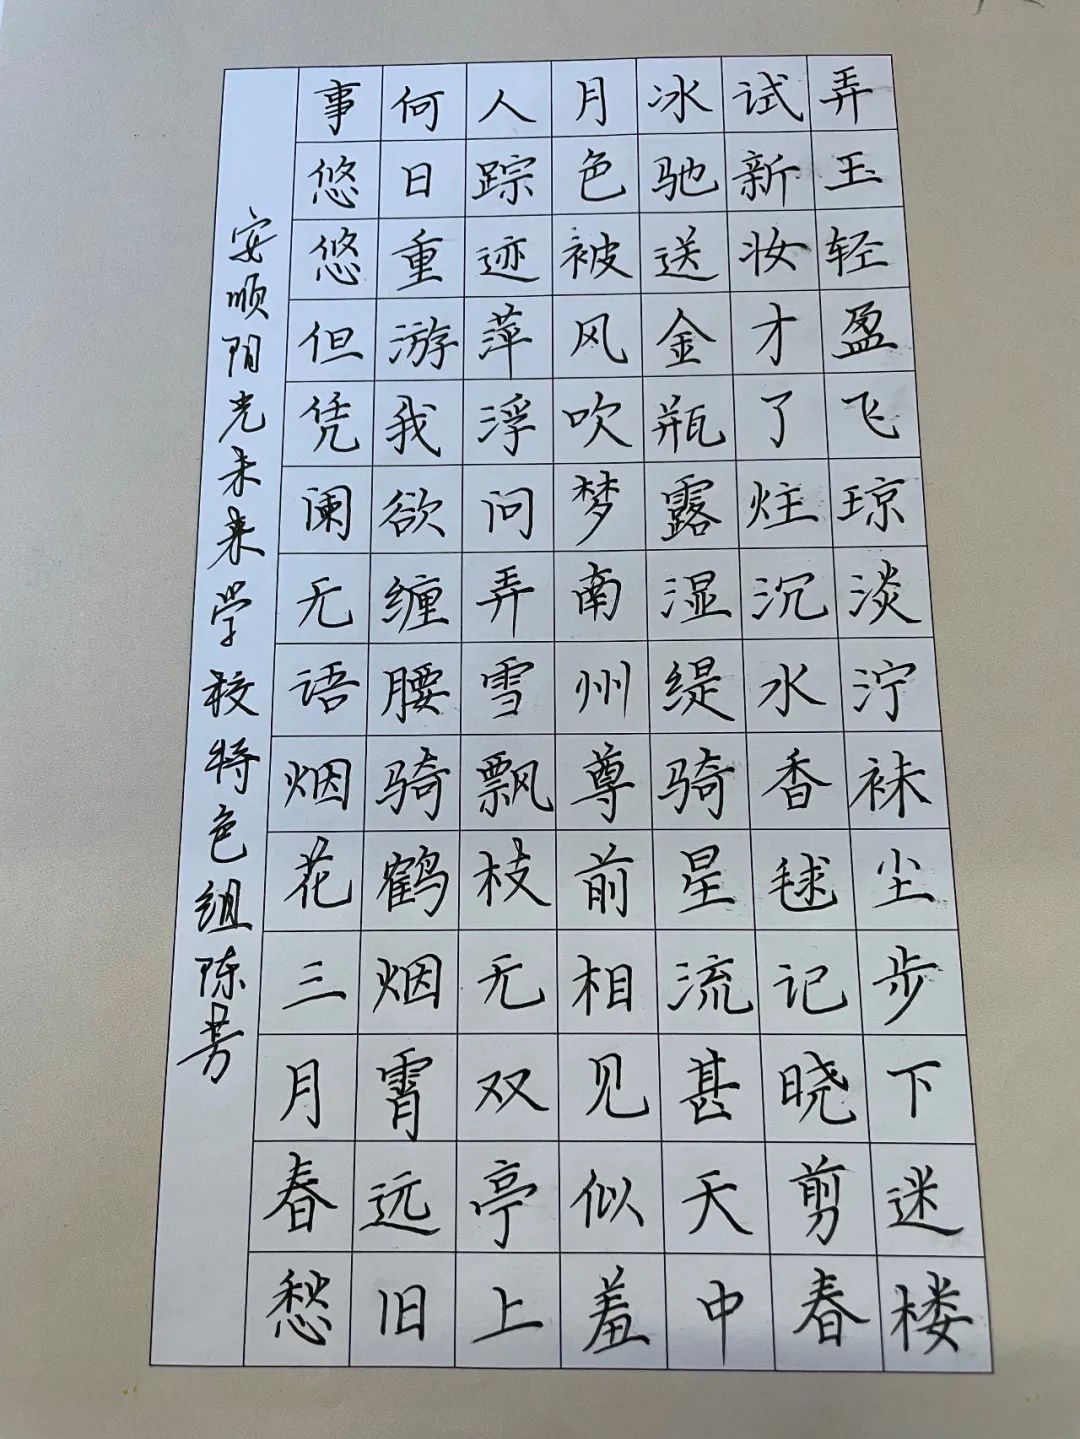 弄玉轻盈飞琼淡泞袜尘步下迷楼
试新妆才了炷沉水香毬记晓剪春
冰驰送金瓶露湿缇骑星流甚天中
月色被风吹梦南州尊前相见似羞
人踪迹萍浮问弄雪飘枝无双亭上
何日重游我欲缠腰骑鹤烟霄远旧
事悠悠但凭阑无语烟花三月春愁
安顺阳光未来学校特色组陈芳